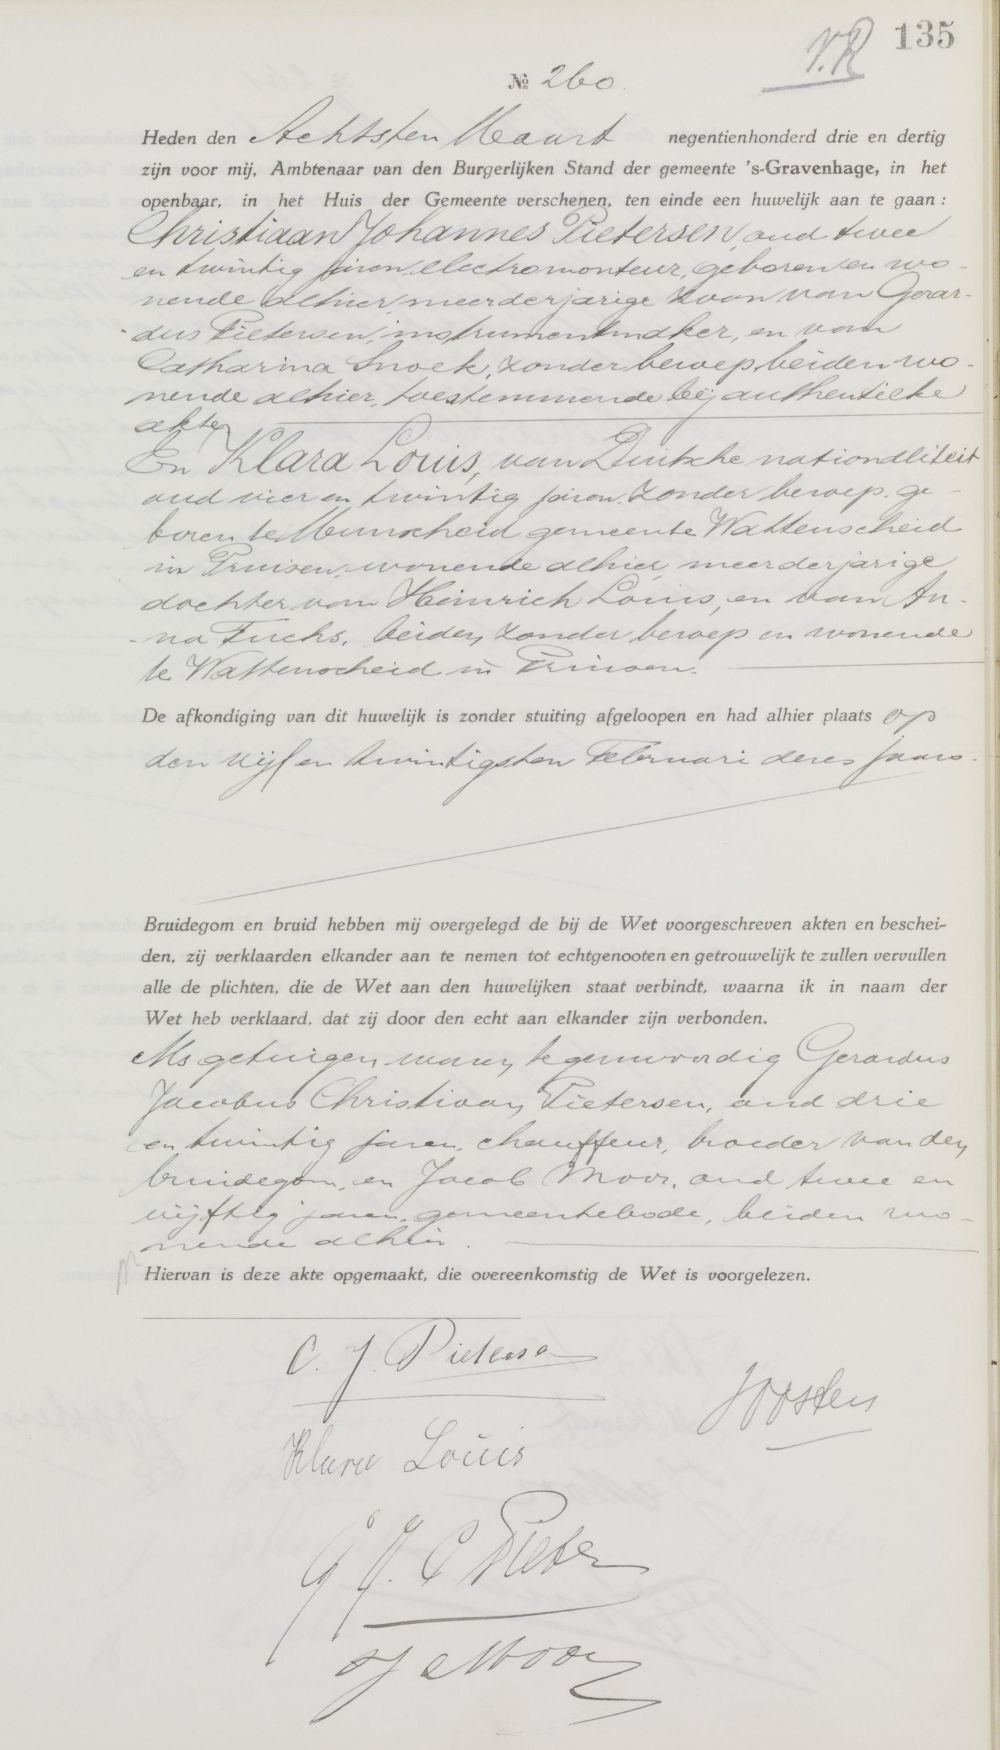 V.R 135
№ 260.
Heden den Achtsten Maart negentienhonderd drie en dertig
zijn voor mij, Ambtenaar van den Burgerlijken Stand der gemeente 's-Gravenhage, in het
openbaar, in het Huis der Gemeente verschenen, ten einde een huwelijk aan te gaan :
Christiaan Johannes Pietersen, oud twee
en twintig jaren, electromonteur, geboren en wo-
nende alhier, meerderjarige zoon van Gerar-
dus Pietersen, instrumentmaker, en van
Catharina Snoek, zonder beroep, beiden wo-
nende alhier, toestemmende bij authentieke
akte.
En Klara Louis, van Duitsche nationaliteit
oud vier en twintig jaren, zonder beroep, ge-
boren te Munscheid gemeente Wattenscheid
in Pruisen, wonende alhier, meerderjarige
dochter van Heinrich Louis, en van An-
na Fuchs, beiden zonder beroep en wonende
te Wattenscheid in Pruisen.
De afkondiging van dit huwelijk is zonder stuiting afgeloopen en had alhier plaats op
den vijf en twintigsten Februari dezes jaars.
Bruidegom en bruid hebben mij overgelegd de bij de Wet voorgeschreven akten en beschei-
den, zij verklaarden elkander aan te nemen tot echtgenooten en getrouwelijk te zullen vervullen
alle de plichten, die de Wet aan den huwelijken staat verbindt, waarna ik in naam der
Wet heb verklaard, dat zij door den echt aan elkander zijn verbonden.
Als getuigen waren tegenwoordig Gerardus
Jacobus Christiaan Pietersen, oud drie
en twintig jaren, chauffeur, broeder van den
bruidegom, en Jacob Moor, oud twee en
vijftig jaren, gemeentebode, beiden wo-
nende alhier.
Hiervan is deze akte opgemaakt, die overeenkomstig de Wet is voorgelezen.
C. J. Pietersen
Joosten
Klara Louis
G J. C Pieter
J Moor